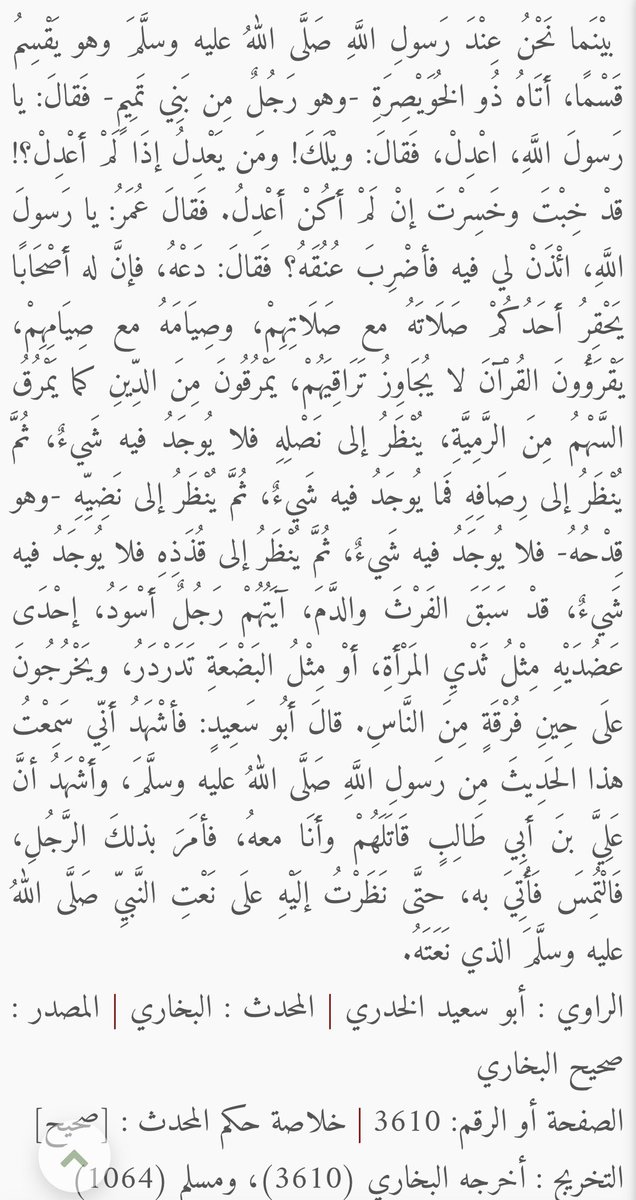 بيْنَما نَحْنُ عِنْدَ رَسولِ اللَّهِ صَلَّى اللهُ عليه وسلَّمَ وهو يَقْسِمُ
قَسْمًا، أَتَاهُ ذُو الخُوَيْصِرَةِ -وهو رَجُلٌ مِن بَنِي تَمِيمٍ- فَقالَ: يا
رَسولَ اللَّهِ، اعْدِلْ، فَقالَ: ويْلَكَ! ومَن يَعْدِلُ إذَا لَمْ أَعْدِلْ؟!
قدْ خِبْتَ وخَسِرْتَ إنْ لَمْ أَكُنْ أَعْدِلُ. فَقالَ عُمَرُ: يا رَسولَ
اللَّهِ، ائْذَنْ لي فيه فأضْرِبَ عُنُقَهُ؟ فَقالَ: دَعْهُ، فإنَّ له أَصْحَابًا
يَحْقِرُ أَحَدُكُمْ صَلَاتَهُ مع صَلَاتِهِمْ، وصِيَامَهُ مع صِيَامِهِمْ،
يَقْرَؤُونَ القُرْآنَ لا يُجَاوِزُ تَرَاقِيَهُمْ، يَمْرُقُونَ مِنَ الدِّينِ كما يَمْرُقُ
السَّهْمُ مِنَ الرَّمِيَّةِ، يُنْظَرُ إلى نَصْلِهِ فلا يُوجَدُ فيه شَيءٌ، ثُمَّ
يُنْظَرُ إلى رِصَافِهِ فَما يُوجَدُ فيه شَيءٌ، ثُمَّ يُنْظَرُ إلى نَضِيِّهِ -وهو
قِدْحُهُ- فلا يُوجَدُ فيه شَيءٌ، ثُمَّ يُنْظَرُ إلى قُذَذِهِ فلا يُوجَدُ فيه
شَيءٌ، قدْ سَبَقَ الفَرْثَ والدَّمَ، آيَتُهُمْ رَجُلٌ أَسْوَدُ، إحْدَى
عَضُدَيْهِ مِثْلُ ثَدْيِ المَرْأَةِ، أَوْ مِثْلُ البَضْعَةِ تَدَرْدَرُ، ويَخْرُجُونَ
علَى حِينِ فُرْقَةٍ مِنَ النَّاسِ. قالَ أَبُو سَعِيدٍ: فأشْهَدُ أَنِّي سَمِعْتُ
هذا الحَدِيثَ مِن رَسولِ اللَّهِ صَلَّى اللهُ عليه وسلَّمَ، وأَشْهَدُ أنَّ
عَلِيَّ بنَ أَبِي طَالِبٍ قَاتَلَهُمْ وأَنَا معهُ، فأمَرَ بذلكَ الرَّجُلِ،
فَالْتُمِسَ فَأُتِيَ به، حتَّى نَظَرْتُ إلَيْهِ علَى نَعْتِ النَّبيِّ صَلَّى اللهُ
عليه وسلَّمَ الذي نَعَتَهُ.
الراوي : أبو سعيد الخدري | المحدث : البخاري | المصدر :
صحيح البخاري
الصفحة أو الرقم: 3610 | خلاصة حكم المحدث : [صحيح]
التخريج : أخرجه البخاري (3610)، ومسلم (1064)